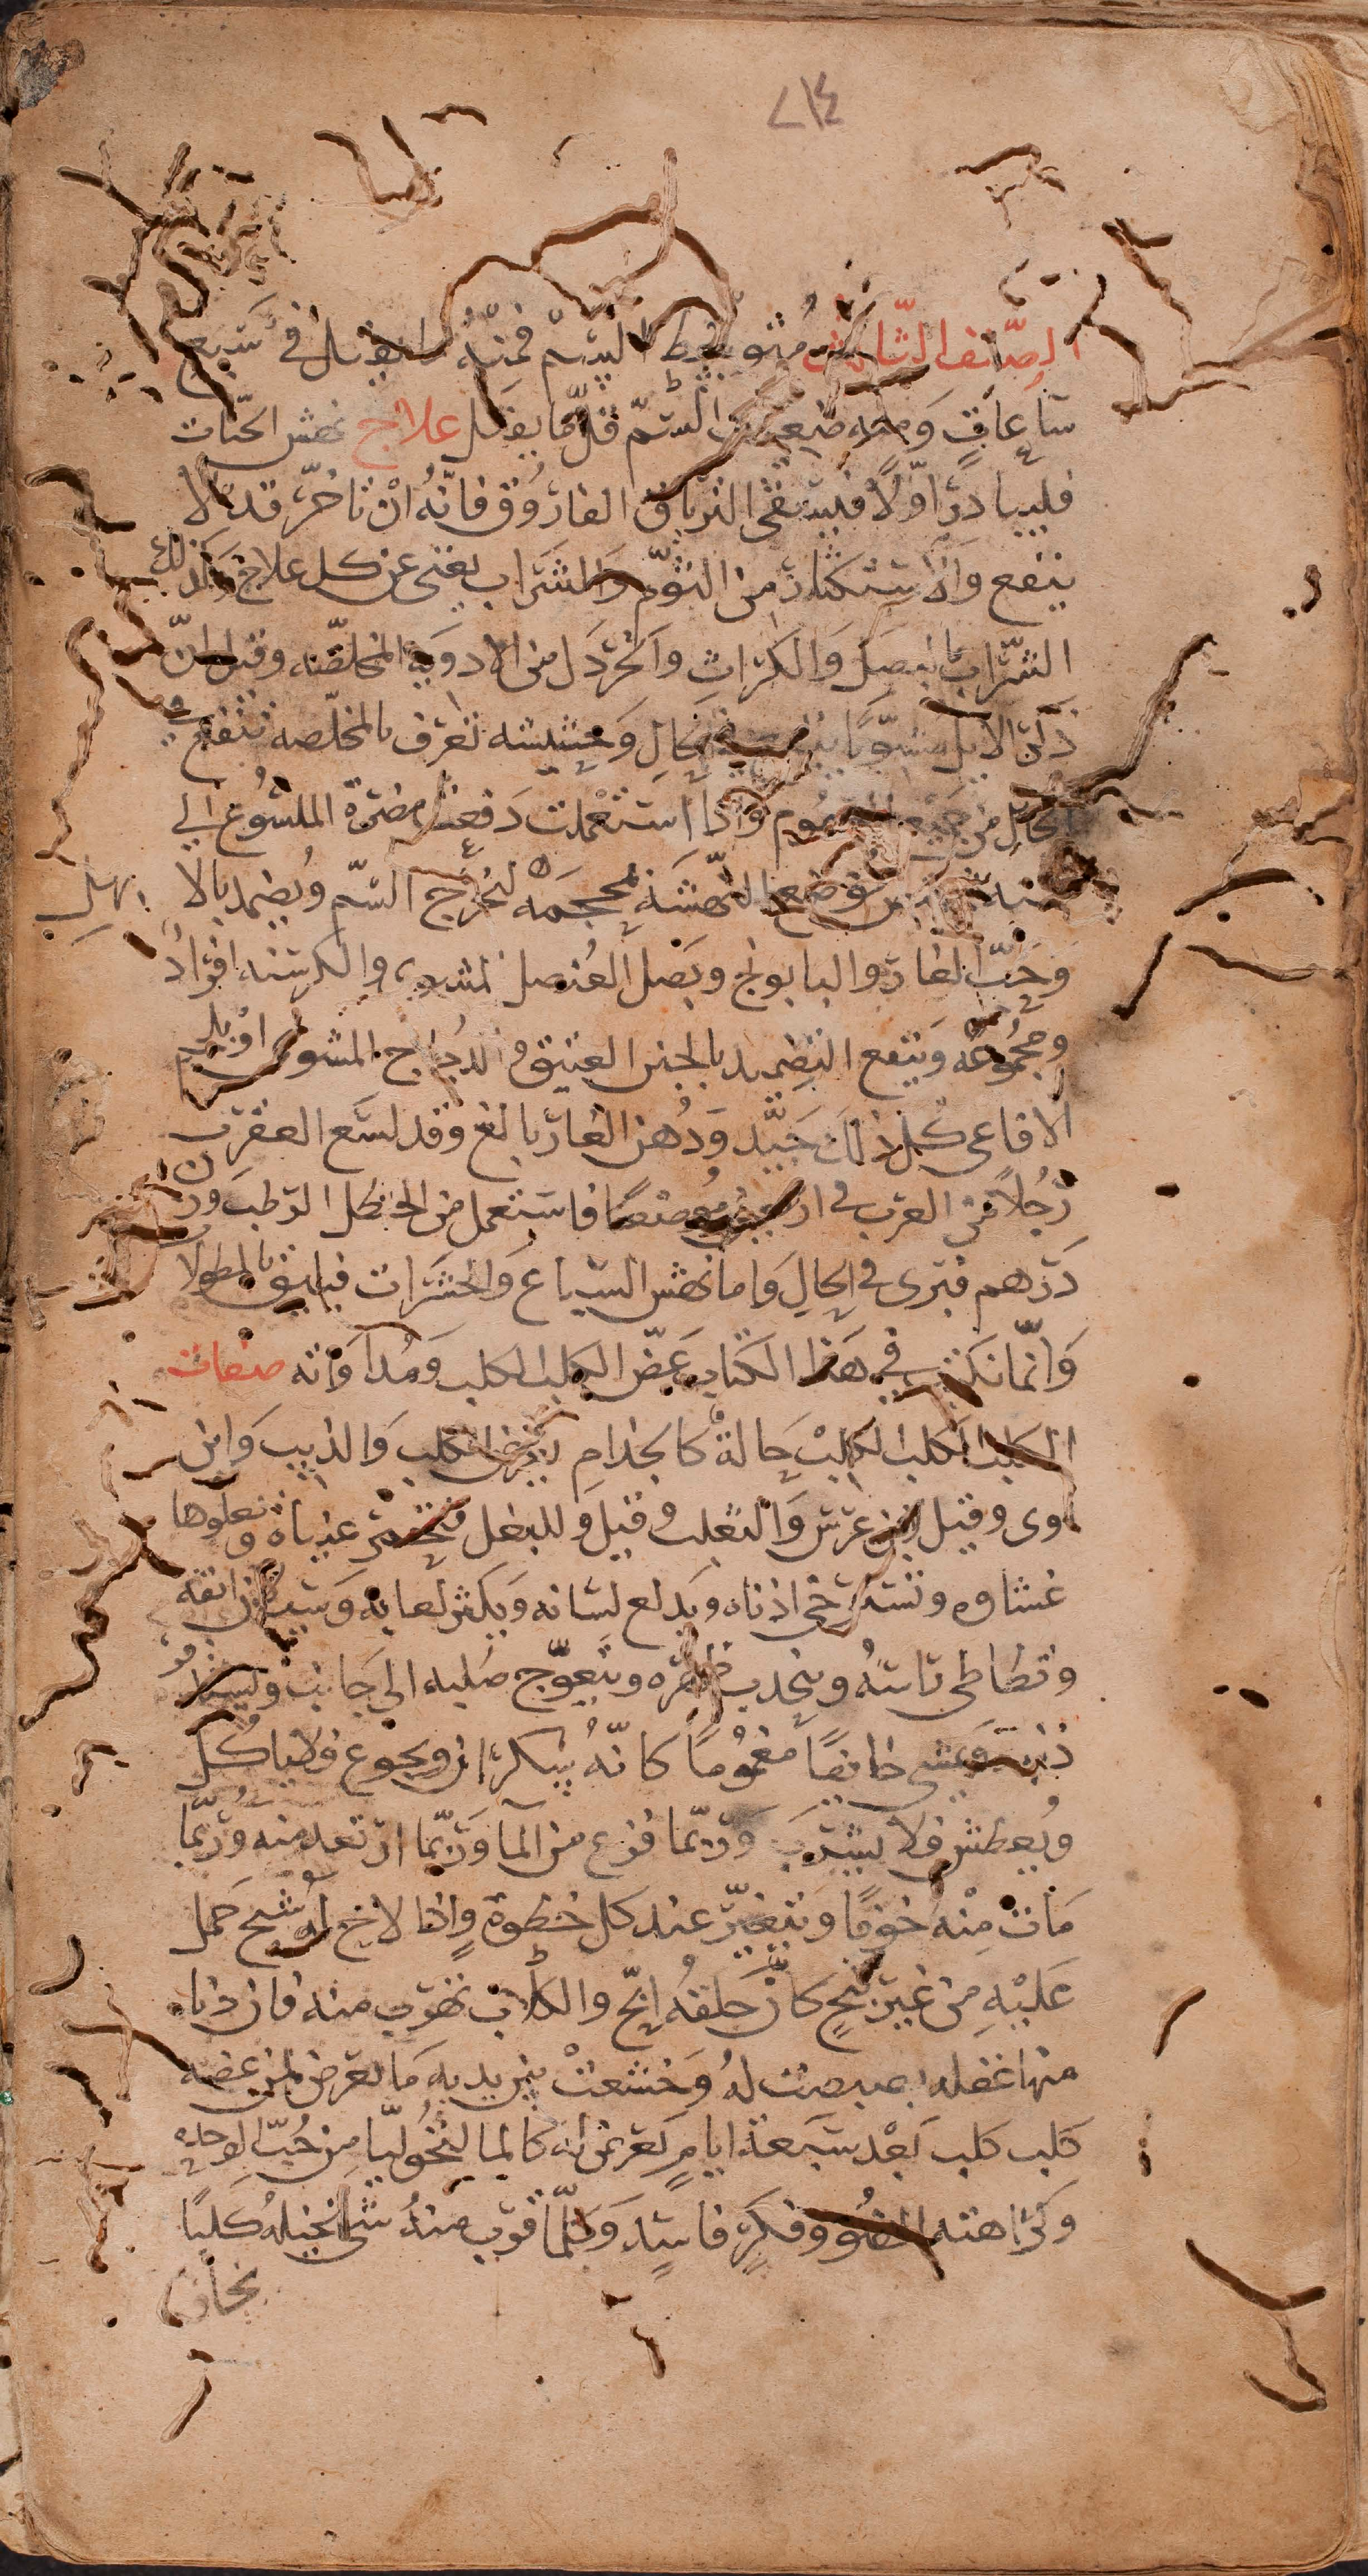 ٢١٤
الصنف الثالث متوسط السم فمنه ما يقتل في سبع
ساعات ومنه ضعيف السم قلّما يقتل علاج نهش الحيّات
فليبادر اوّلاً فليسقى الترياق الفاروق فانّهُ انْ تاخّر قد لا
ينفع والاستكثار من الثوم والشراب يغنى عن كل علاج وكذلك
الشّراب بالبصل والكرّاث والخردل من الادوية المخلصه وقيل انّ
ذكر الايل مشوياً في الحال وحشيشه تعرف بالمخلّصه تنفع في
الحال من جميع السموم واذا استعملت دفعت مضرة الملسُوع الى
سنة توضع النهشة محجمه لتخرج السّم ويُضمد بالابهل
وحبّ الغار والبابونج وبصل العُنصل المشوي والكرسنه افرادُ
ومجمُوعه وينفع التضميد بالجبن العتيق والدُجاج المشوى او بلحم
الافاعى كل ذلك جيّد ودُهن الغار بالغ وقد لسع العقرب
رجُلاً من العرب في اربعين موضعاً فاستعمل من الحنظل الرطب وزن
درهم فبرى في الحال واما نهش السباع والحشرات فيليق بالمطولا
وانّما نكتب في هذا الكتاب عضّ الكلب الكلب ومُداواته صفات
الكلب الكلب الكلبْ حالةٌ كالجذام يعرض للكلب والذيب وابن
اوى وقيل ابن عرس والثعلب وقيل وللبغل فتحمرّ عيناه وتعلوها
غشاوه وتسترخى اذناه ويدلع لسانه ويكثر لعابه وسيلان انفه
وتطاطى راسهُ وينحدب ظهره ويتعوّج صُلبه الى جانب
ذنبه ويمشى خايفاً مغمُوماً كانّهُ سكران ويجوع فلا ياكُل
ويُعطش فلا يشربَ وربّما فزع من الما وربّما ارتعد منه وربّما
مات منهُ خوفاً ويتغيّر عند كل خطوة واذا لاح له شبح حمل
عَليْهِ من غير نبح كأنّ حلقهُ ابحّ والكلاب تهرب منه فان دنا
منها غفله بصبصت لهُ وخشعتْ بين يديه ما يعرض لمن عضه
كلب كلب بَعْد سبعة ايامٍ يعرض له كالمالنخُوليا من حُبّ الوحده
وكراهته الضو وفكرٍ فاسدٍ وكلّما قرب منهُ شى تخيلهُ كلباً
نخاف